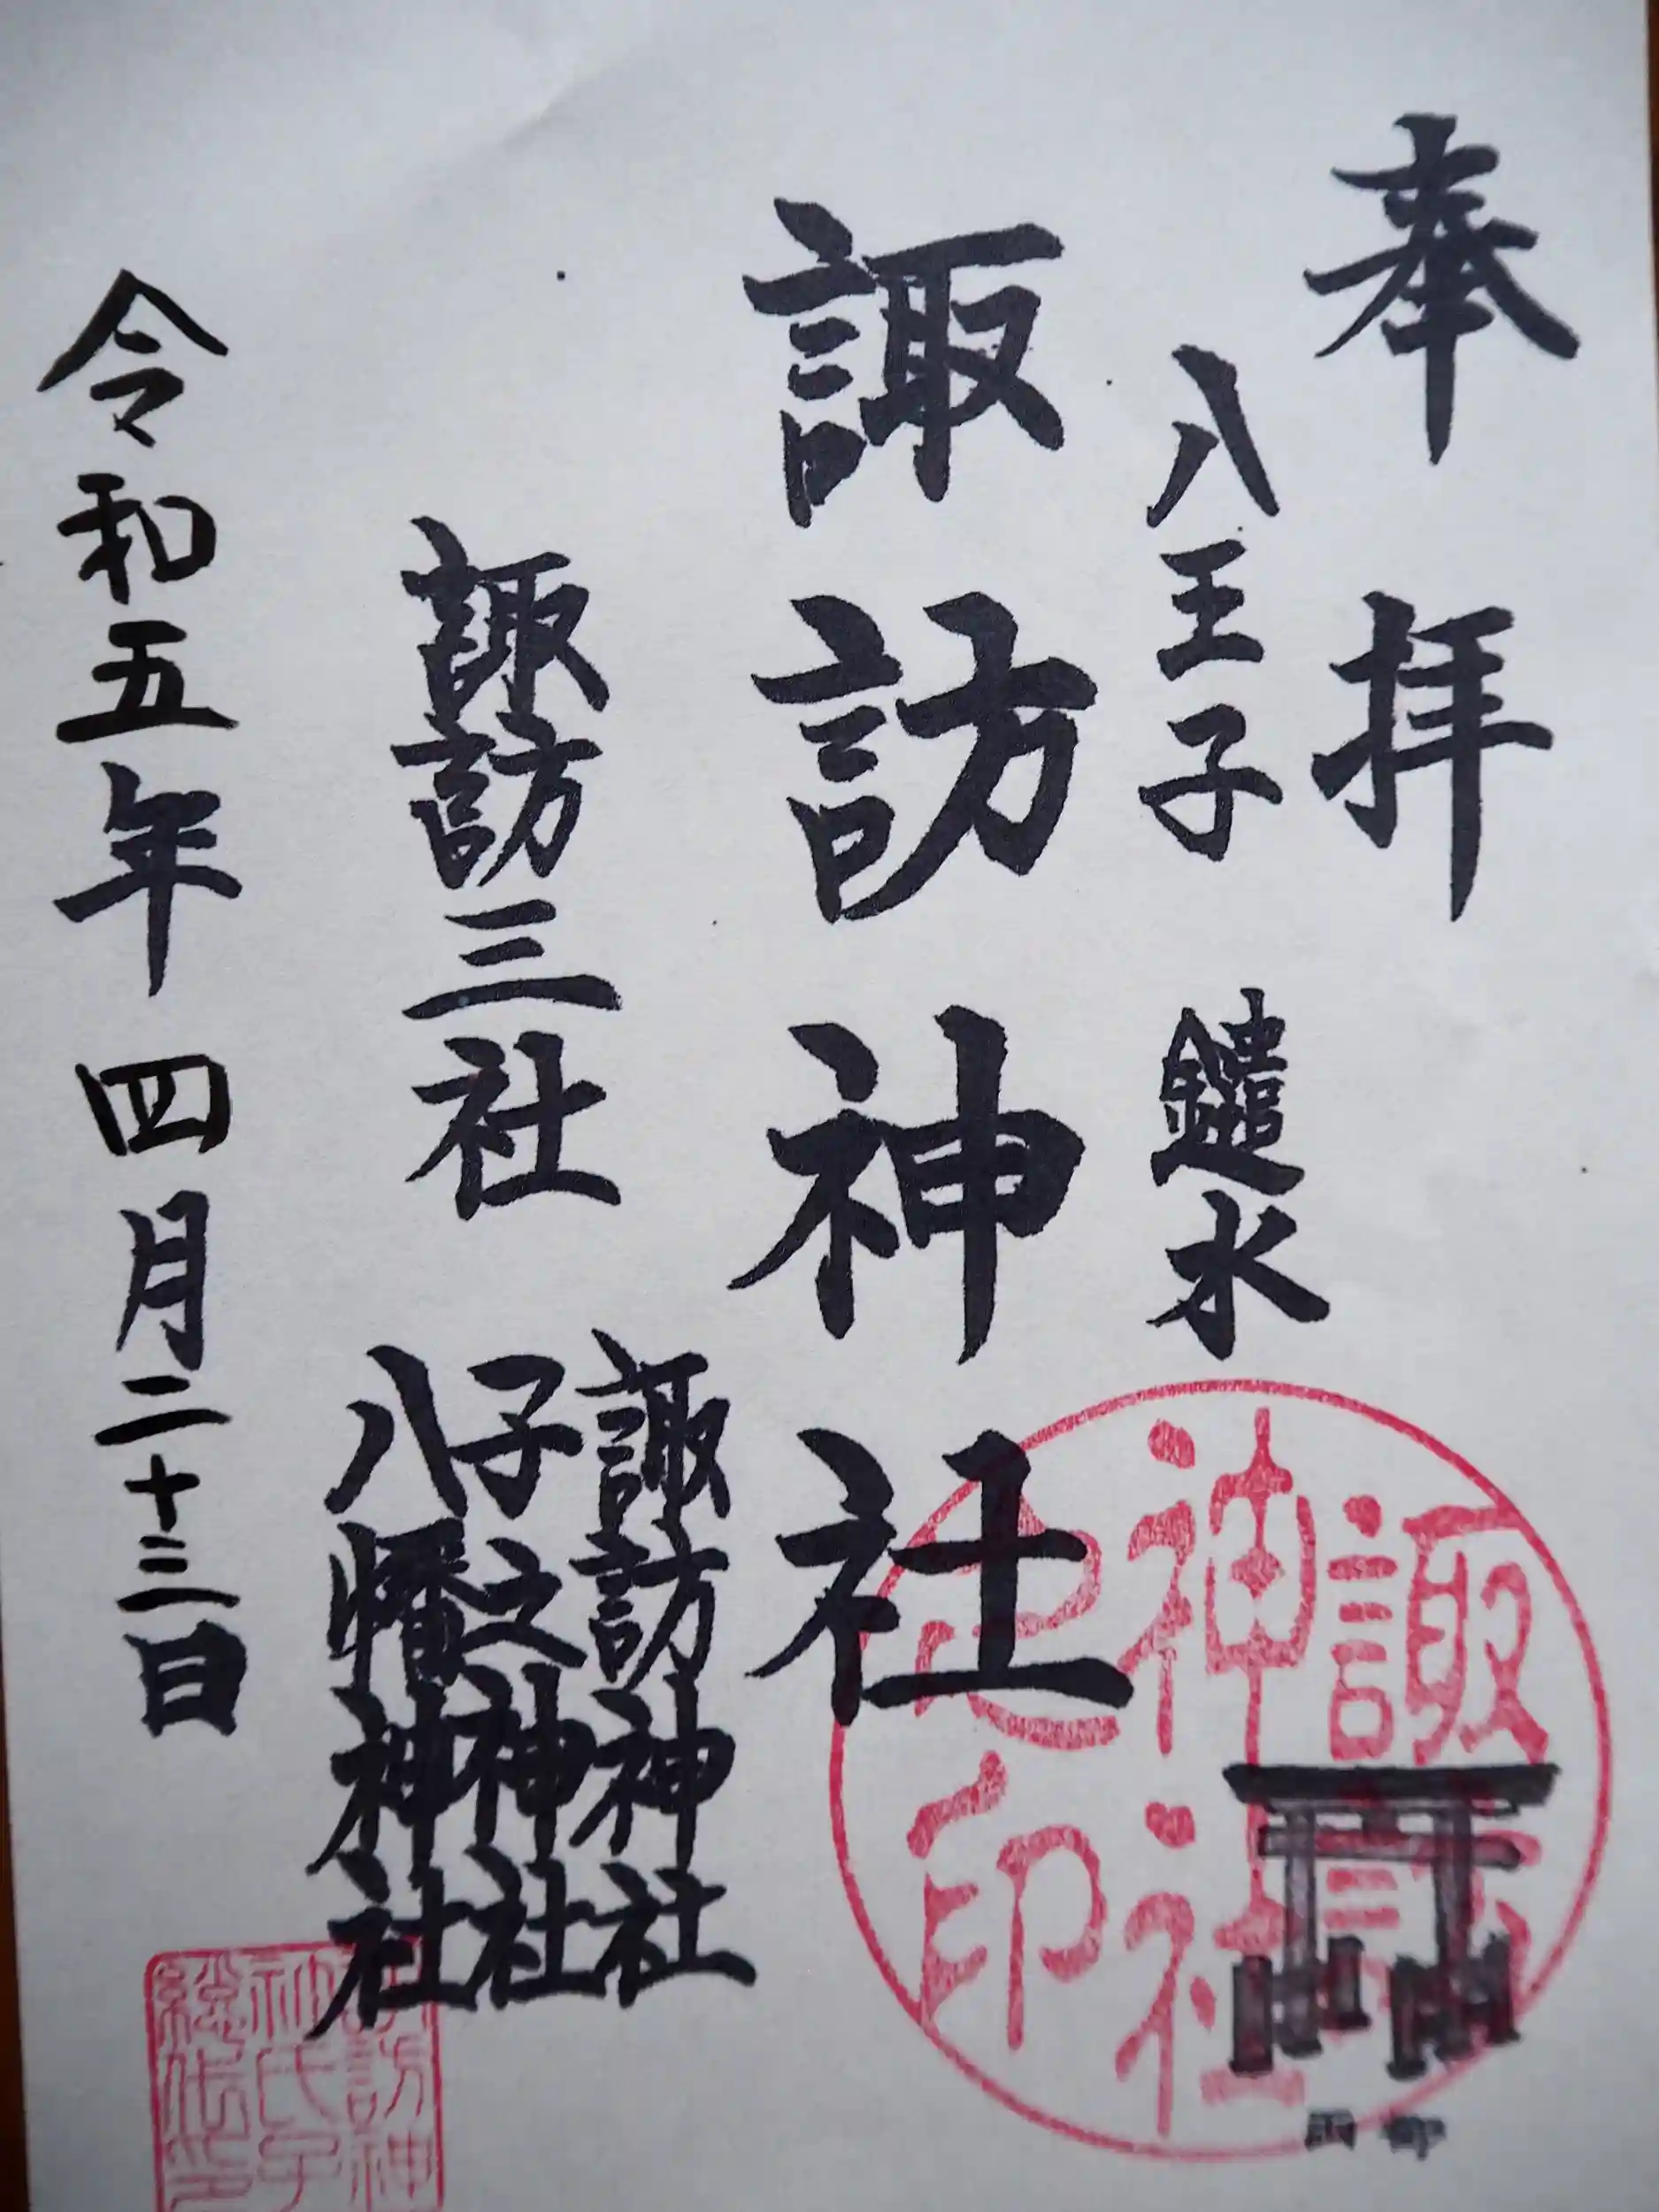 奉拝
八王子 鑓水
諏訪神社
諏訪三社
諏訪神社
子之神社
八幡神社
令和五年 四月二十三日
諏訪
神社
之印
諏訪神
社氏子
総代印